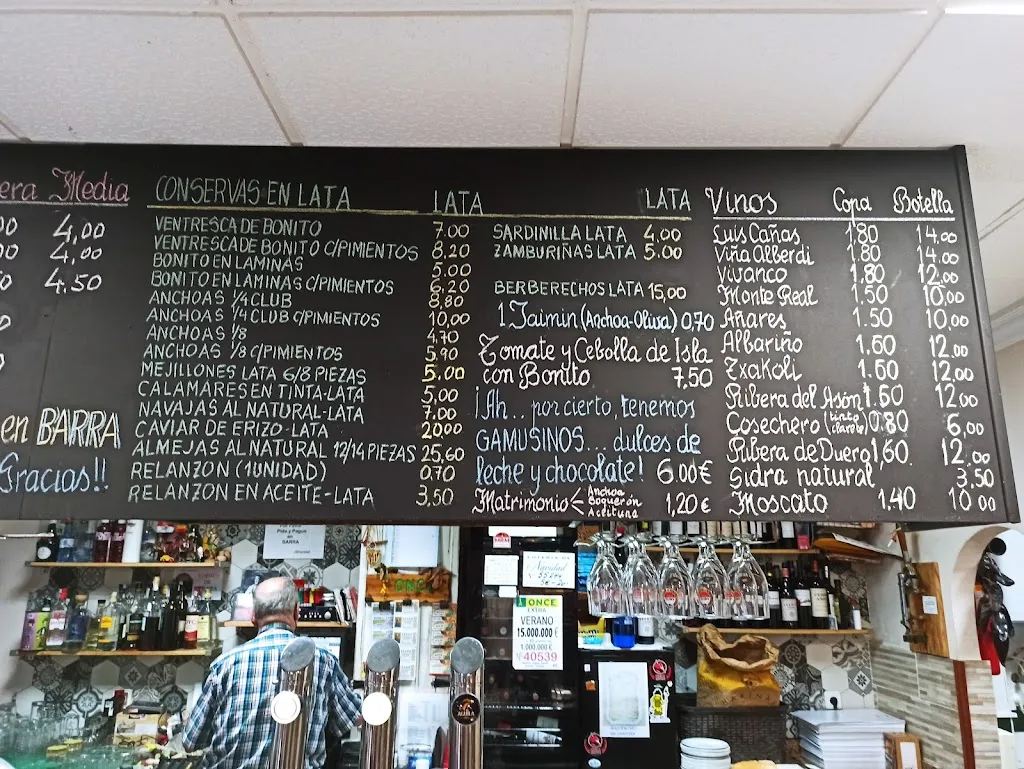 era Media
00 4,00
00 4,00
0 4.50
en BARRA
Gracias!!
CONSERVAS EN LATA LATA
VENTRESCA DE BONITO 7.00
VENTRESCA DE BONITO C/PIMIENTOS 8,20
BONITO EN LAMINAS 5.00
BONITO EN LAMINAS C/PIMIENTOS 6,20
ANCHOAS 1/4 CLUB 8,80
ANCHOAS 1/4 CLUB C/PIMIENTOS 10,00
ANCHOAS 1/8 4,70
ANCHOAS 1/8 C/PIMIENTOS 5,90
MEJILLONES LATA 6/8 PIEZAS 5,00
CALAMARES EN TINTA-LATA 5,00
NAVAJAS AL NATURAL-LATA 7,00
CAVIAR DE ERIZO-LATA 2000
ALMEJAS AL NATURAL 12/14 PIEZAS 25,60
RELANZON (1UNIDAD) 0,70
RELANZON EN ACEITE-LATA 3,50
LATA
SARDINILLA LATA 4,00
ZAMBURIÑAS LATA 5.00
BERBERECHOS LATA 15,00
1 Jaimin (Anchoa-Oliva) 0,70
Tomate y Cebolla de Isla
con Bonito 7,50
¡Ah.. por cierto, tenemos
GAMUSINOS... dulces de
leche y chocolate! 6.00€
Matrimonio Anchoa Boquerón Aceituna 1,20€
Vinos Copa Botella
Luis Cañas 1'80 14,00
Viña Alberdi 1,80 14,00
Vivanco 1,80 12,00
Monte Real 1.50 10,00
Añares 1.50 10,00
Albariño 1,60 12,00
Txakoli 1.60 12,00
Ribera del Asón 1,50 12,00
Cosechero (tinto clarete) 0.80 6,00
Ribera de Duero 1,60. 12,00
Sidra natural 3,50
Moscato 1.40 10 00
BARRA
ONCE
ONCE
EXTRA
VERANO
15.000.000€
1.000.000€
40539